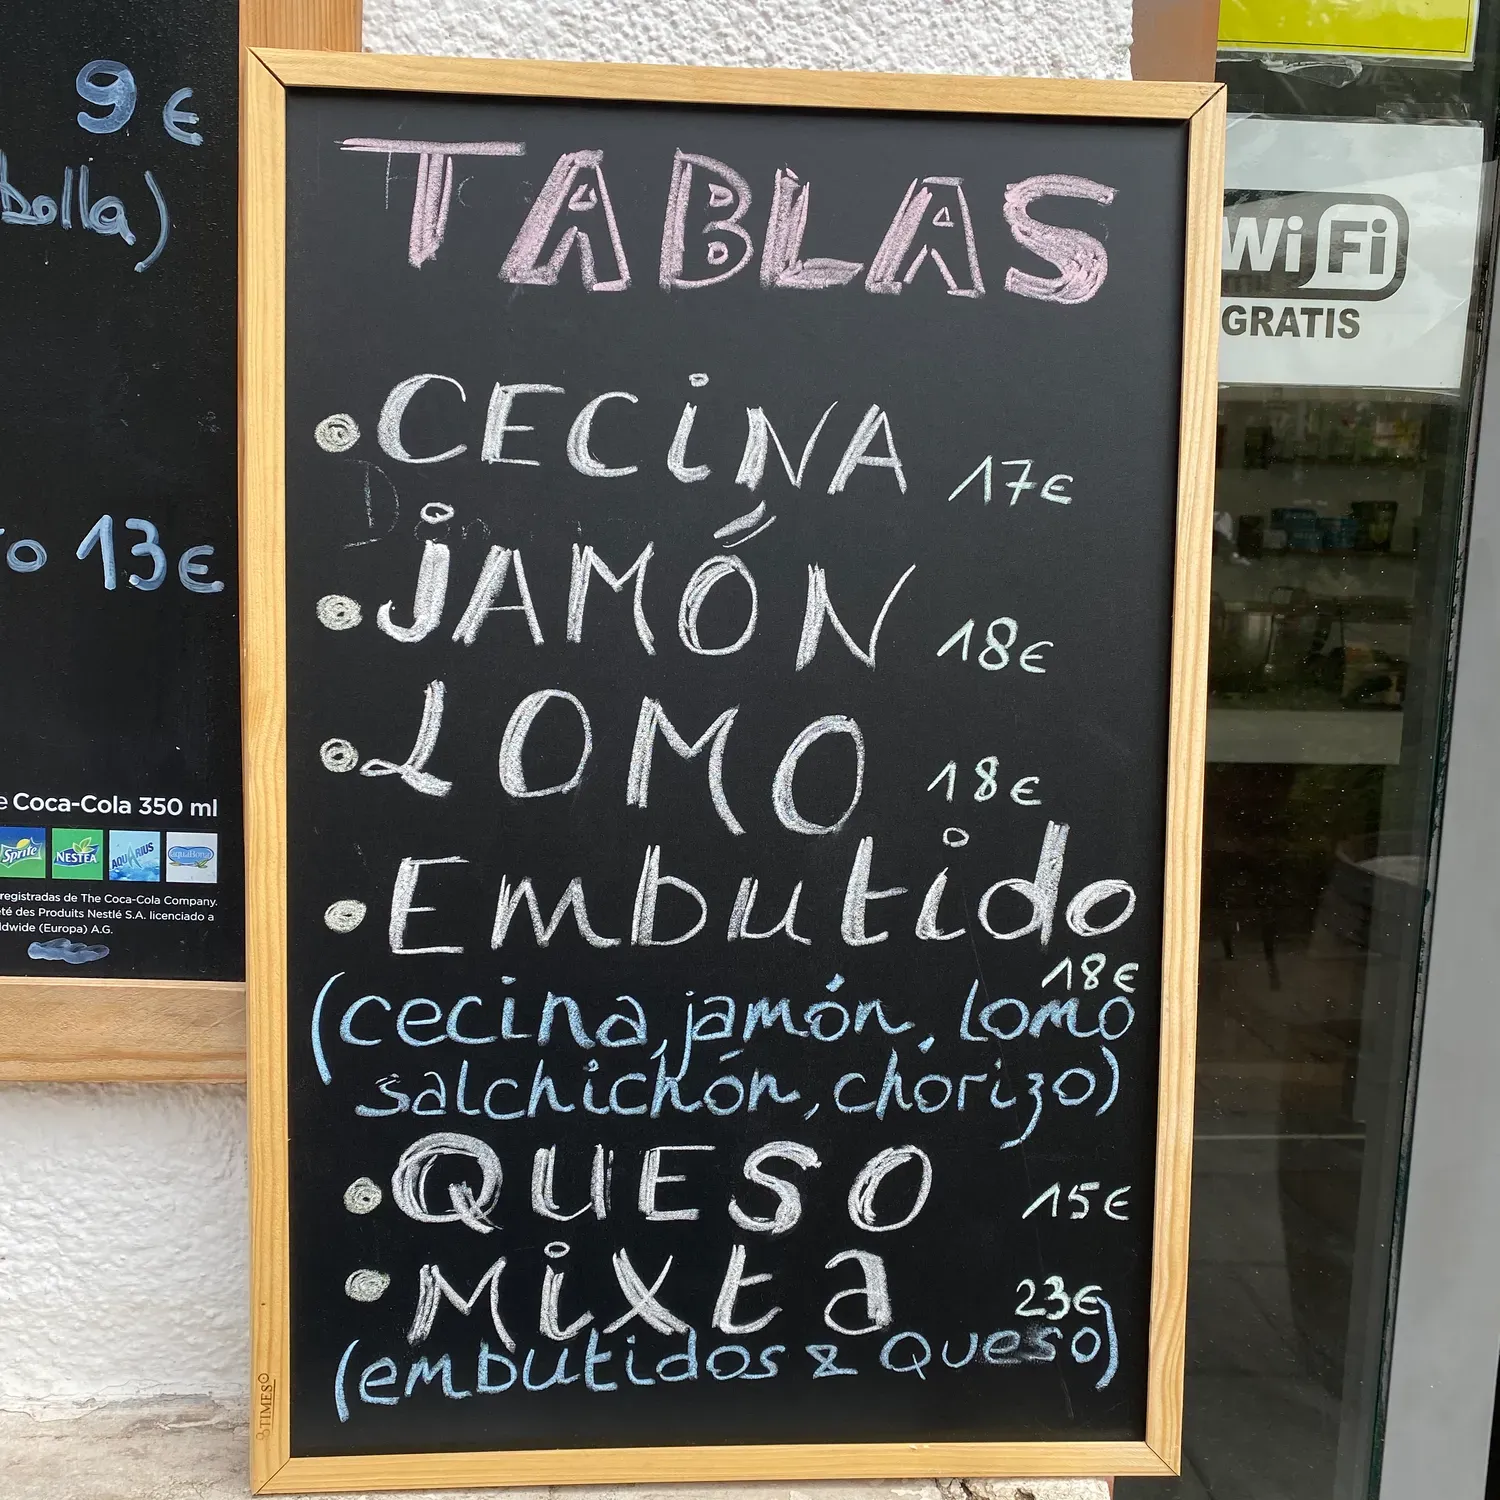 9 €
bolla)
o 13€
e Coca-Cola 350 ml
Sprite NESTEA AQUARIUS aquaBona
registradas de The Coca-Cola Company.
été des Produits Nestlé S.A. licenciado a
ldwide (Europa) A.G.
TABLAS
• CECiNA 17€
• jAMÓN 18€
• LOMO 18€
• Embutido
18€
(cecina, jamón, Lomo
salchichón, chorizo)
• QUESO 15€
• Mixta 23€
(embutidos & Queso)
TIMES
WiFi
GRATIS